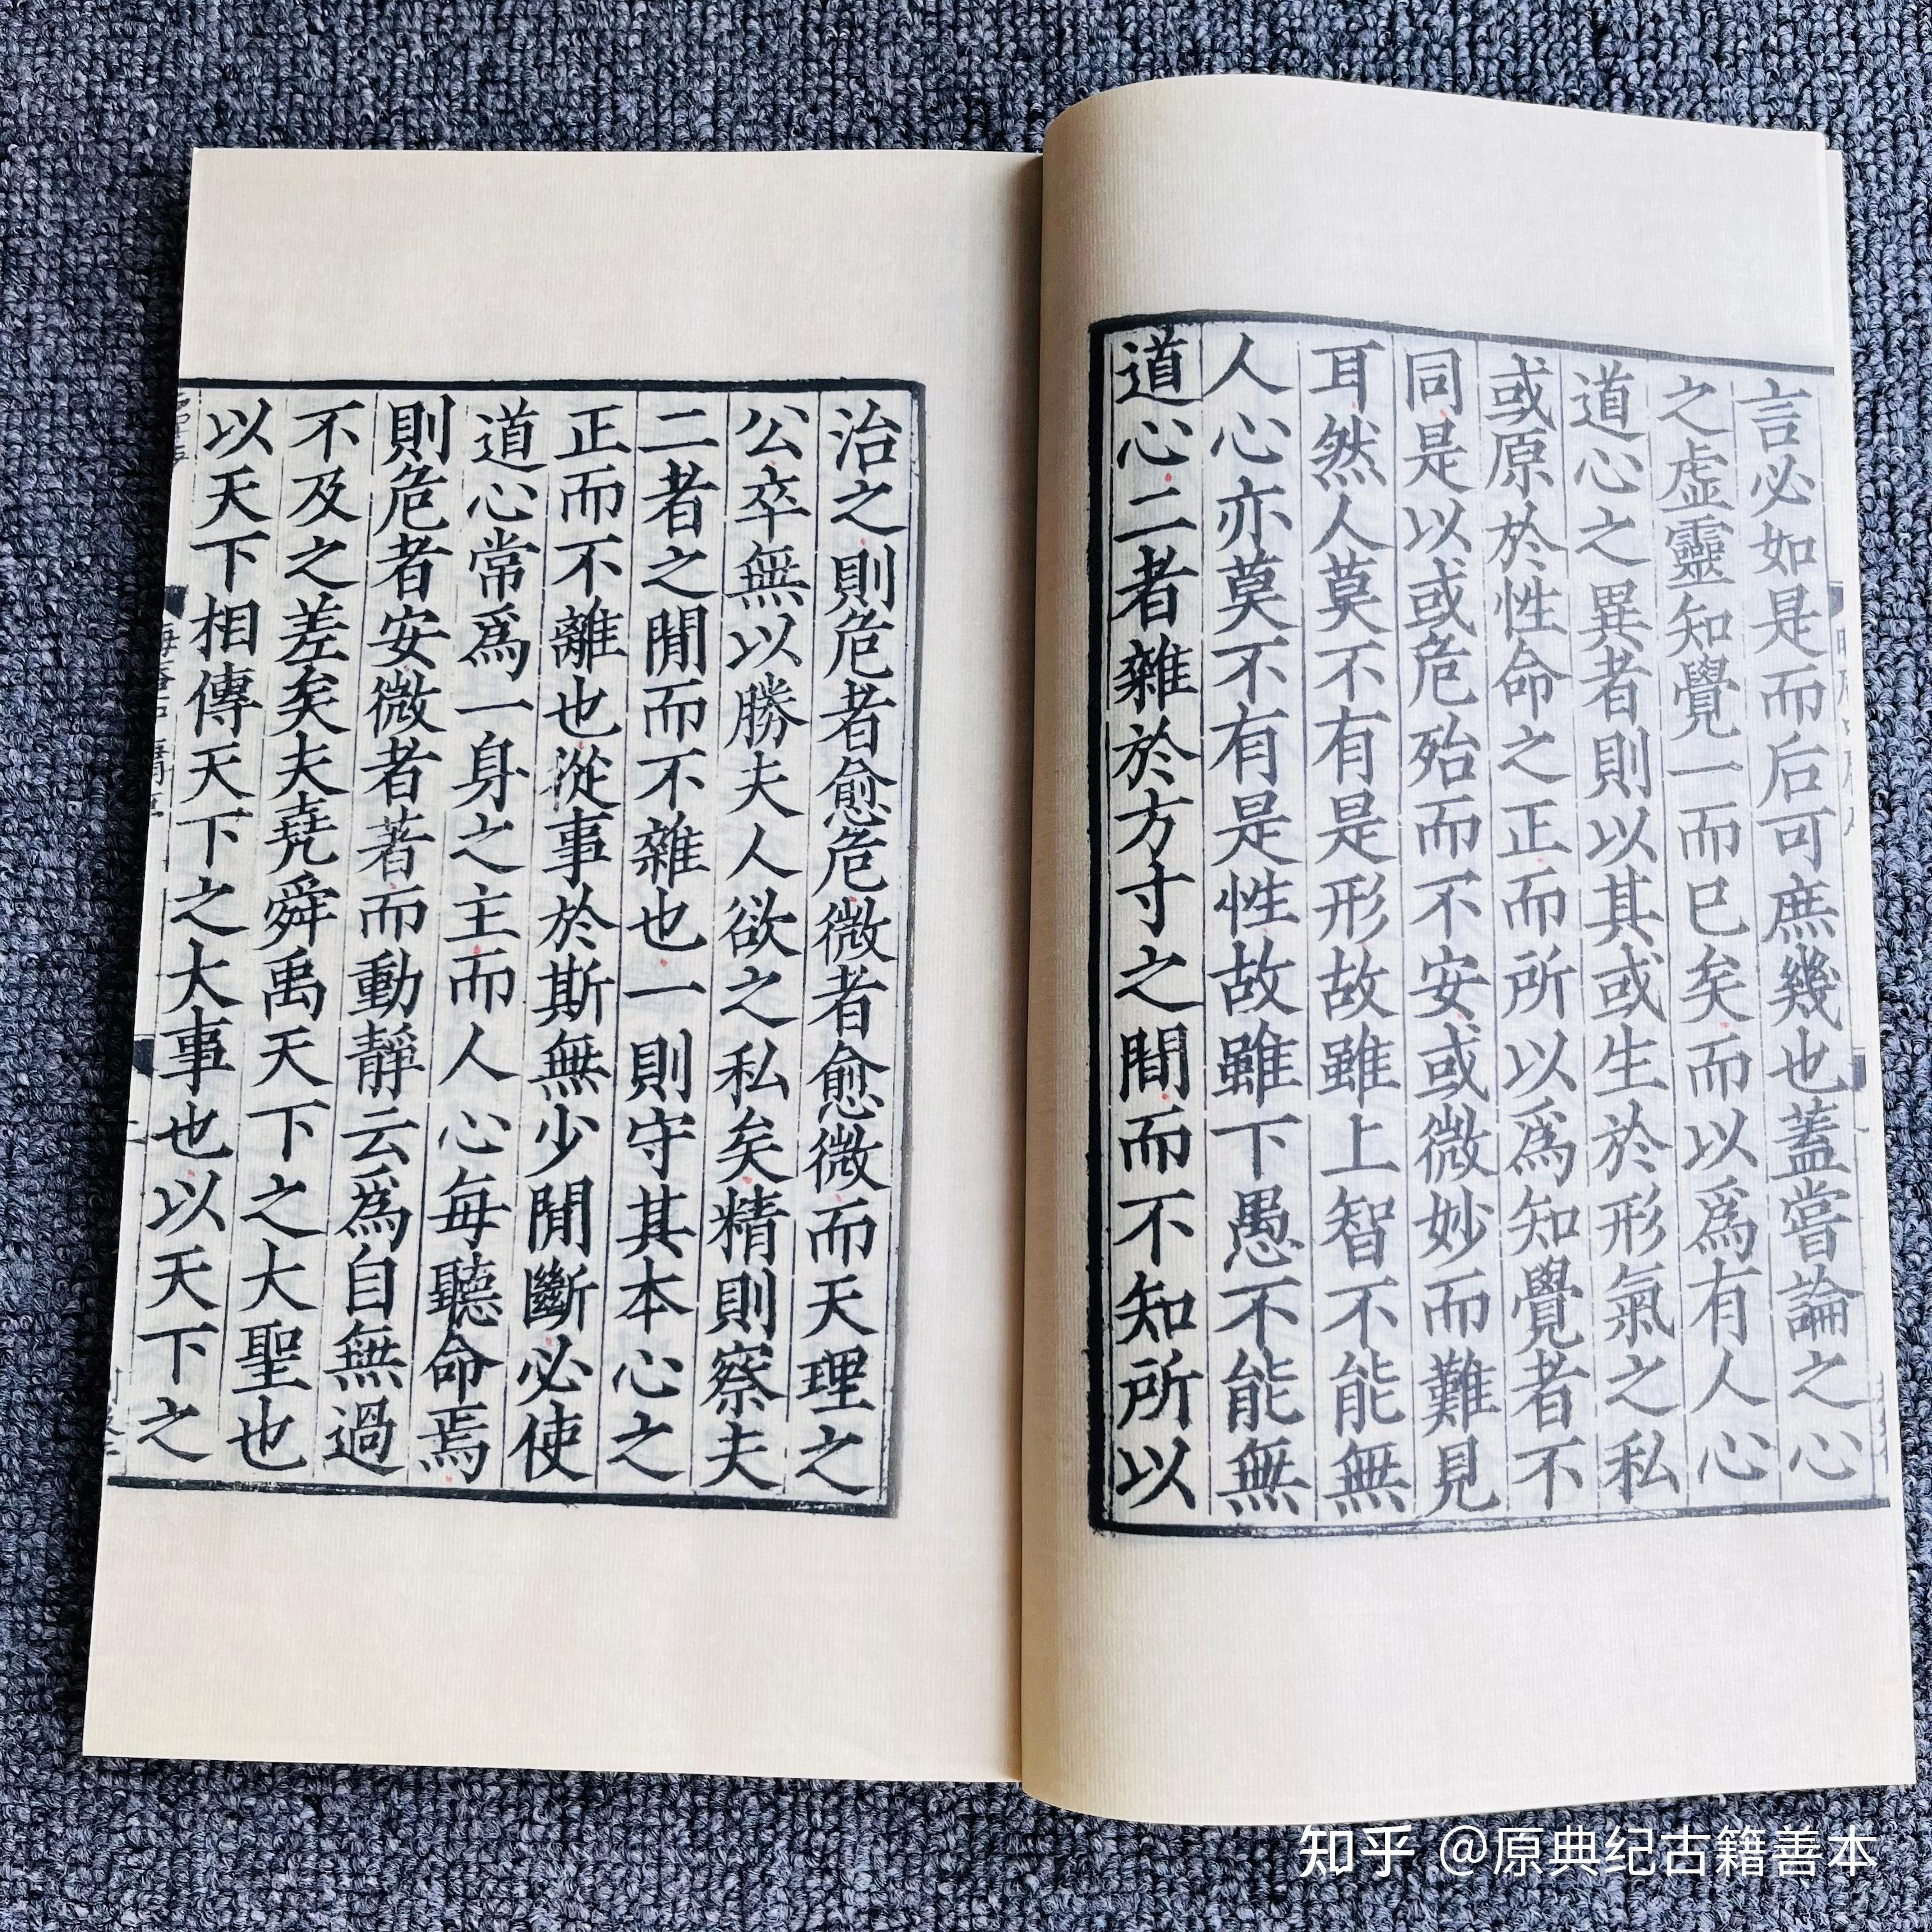 言必如是而后可庶幾也蓋嘗論之心
之虛靈知覺一而巳矣而以爲有人心
道心之異者則以其或生於形氣之私
或原於性命之正而所以爲知覺者不
同是以或危殆而不安或微妙而難見
耳然人莫不有是形故雖上智不能無
人心亦莫不有是性故雖下愚不能無
道心二者雜於方寸之間而不知所以
治之則危者愈危微者愈微而天理之
公卒無以勝夫人欲之私矣精則察夫
二者之閒而不雜也一則守其本心之
正而不離也從事於斯無少閒斷必使
道心常爲一身之主而人心每聽命焉
則危者安微者著而動靜云爲自無過
不及之差矣夫堯舜禹天下之大聖也
以天下相傳天下之大事也以天下之
知乎 @原典纪古籍善本